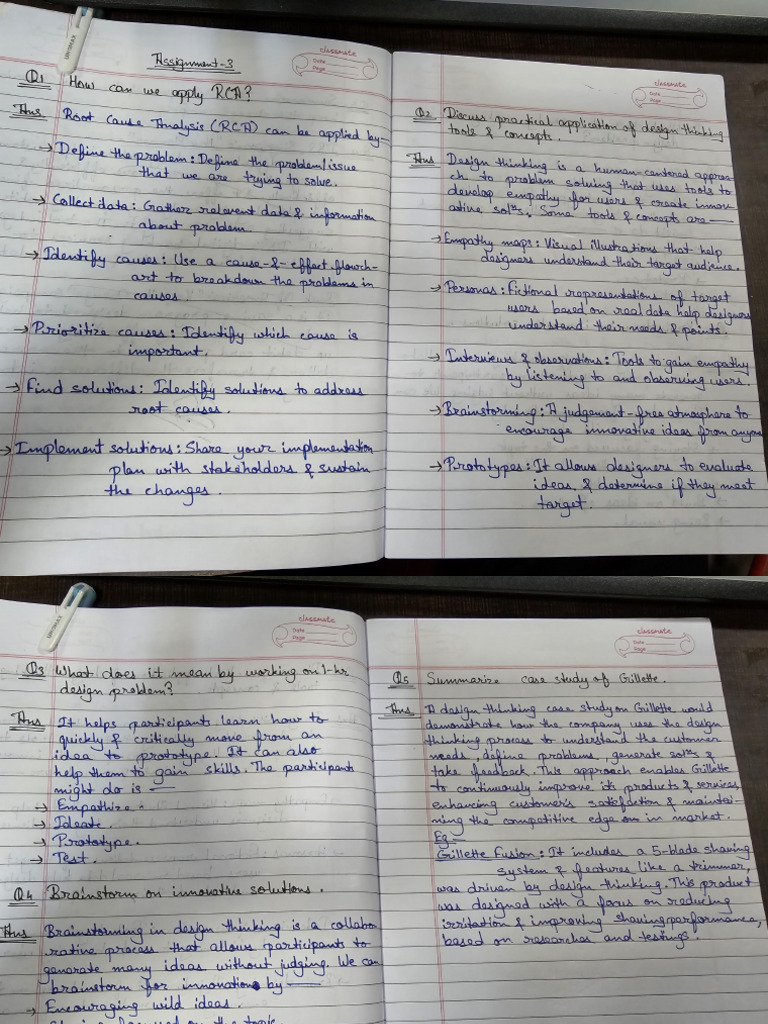 Assignment-3
classmate
Date
Page
Q1 How can we apply RCA?
Ans Root Cause Analysis (RCA) can be applied by—
→ Define the problem: Define the problem/issue
that we are trying to solve.
→ Collect data: Gather relevent data & information
about problem.
→ Identify causes: Use a cause-&-effect flowch-
art to breakdown the problems in
causes.
→ Prioritize causes: Identify which cause is
important.
→ Find solutions: Identify solutions to address
root causes.
→ Implement solutions: Share your implementation
plan with stakeholders & sustain
the changes.
classmate
Date
Page
Q2 Discuss practical application of design thinking
tools & concepts.
Ans Design thinking is a human-centered approa-
ch to problem solving that uses tools to
develop empathy for users & create innov-
ative solⁿs. Some tools & concepts are—
→ Empathy maps: Visual illustrations that help
designers understand their target audience.
→ Personas: Fictional representations of target
users based on real data help designers
understand their needs & points.
→ Interviews & observations: Tools to gain empathy
by listening to and observing users.
→ Brainstorming: A judgement-free atmosphere to
encourage innovative ideas from anyone
→ Prototypes: It allows designers to evaluate
ideas & determine if they meet
target.
classmate
Date
Page
Q3 What does it mean by working on 1-hr
design problem?
Ans It helps participants learn how to
quickly & critically move from an
idea to prototype. It can also
help them to gain skills. The participants
might do is —
→ Empathize.
→ Ideate.
→ Prototype.
→ Test.
Q4 Brainstorm on innovative solutions.
Ans Brainstorming in design thinking is a collabo
rative process that allows participants to
generate many ideas without judging. We can
brainstorm for innovation by —
→ Encouraging wild ideas.
on the topic.
classmate
Date
Page
Q5 Summarize case study of Gillette.
Ans A design thinking case study on Gillette would
demonstrate how the company uses the design
thinking process to understand the customer
needs, define problems, generate solⁿs &
take feedback. This approach enables Gillette
to continuously improve its products & services,
enhancing customer's satisfaction & maintai-
ning the competitive edge in market.
Eg—
Gillette Fusion: It includes a 5-blade shaving
system & features like a trimmer,
was driven by design thinking. This product
was designed with a focus on reducing
irritation & improving shaving performance,
based on researches and testings.